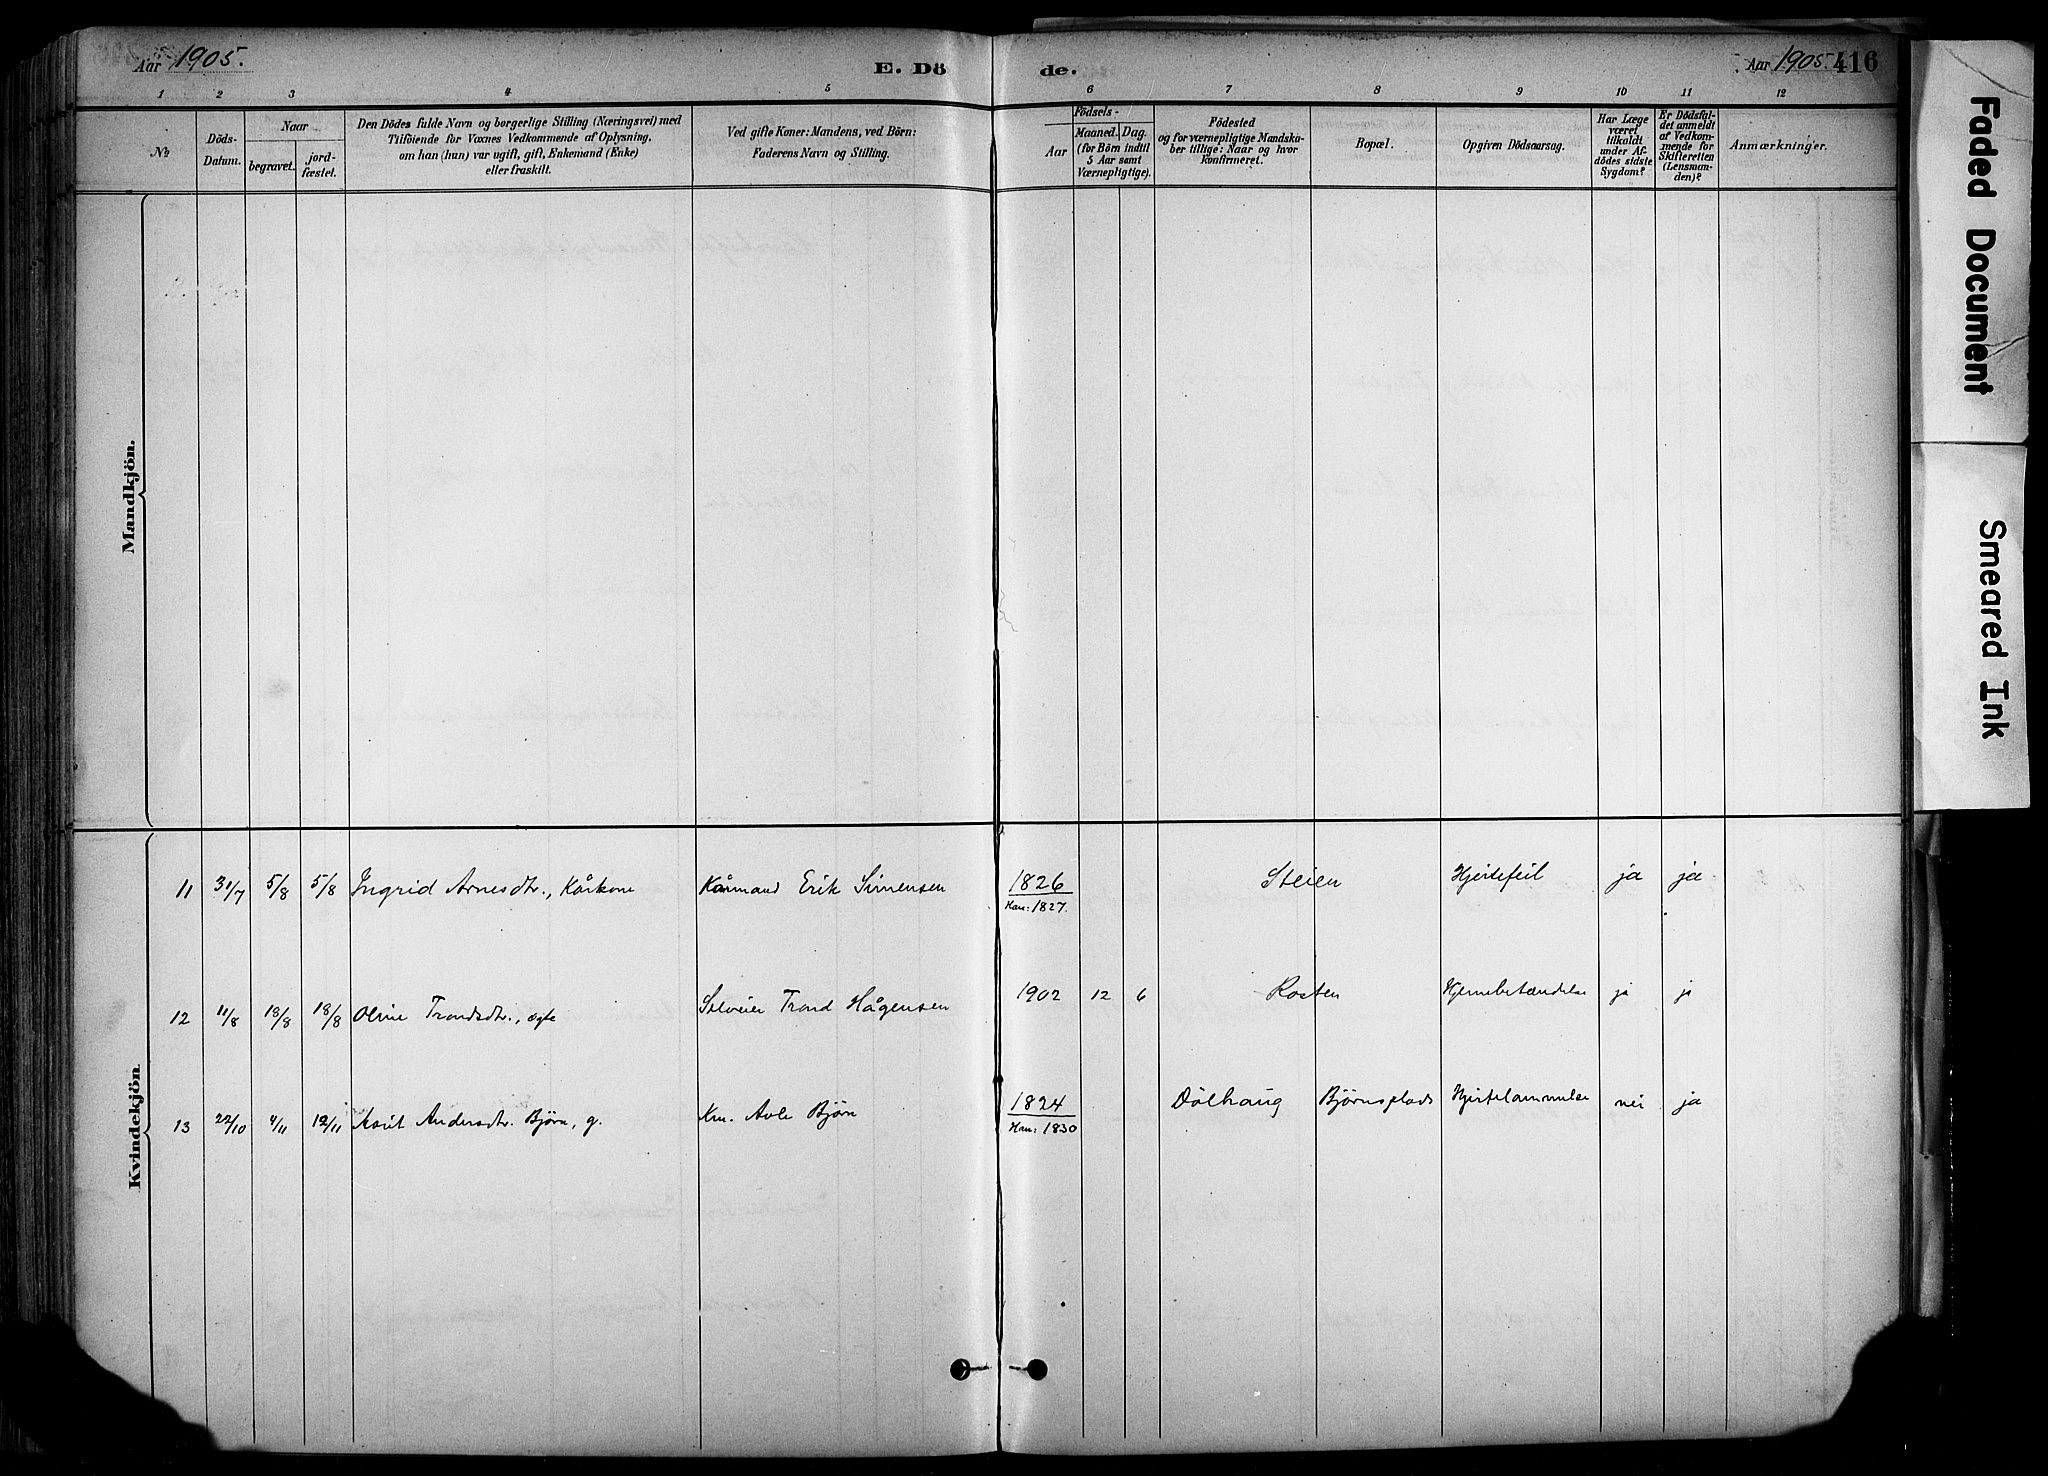 Aar 1905.
E. Dö
de.
Aar 1905. 416
1 2 3 4 5 6 7 8 9 10 11 12
№
Döds-
Datum.
Naar
begravet.
jord-
fæstet.
Den Dödes fulde Navn og borgerlige Stilling (Næringsvei) med
Tilföiende for Voxnes Vedkommende af Oplysning,
om han (hun) var ugift, gift, Enkemand (Enke)
eller fraskilt.
Ved gifte Koner: Mandens, ved Börn:
Faderens Navn og Stilling.
Födsels-
Aar
Maaned. Dag.
(for Börn indtil
5 Aar samt
Værnepligtige).
Födested
og for værnepligtige Mandska-
ber tillige: Naar og hvor
Konfirmeret.
Bopæl.
Opgiven Dödsaarsag.
Har Læge
været
tilkaldt
under Af-
dödes sidste
Sygdom?
Er Dödsfal-
det anmeldt
af Vedkom-
mende for
Skifteretten
(Lensman-
den)?
Anmærkninger.
Mandkjön.
Kvindekjön.
11 31/7 5/8 5/8 Ingrid Arnesdtr., Kårkone Kårmand Erik Simensen 1826 Steien Hjertefeil ja ja
Han: 1827.
12 11/8 18/8 18/8 Oline Trondsdtr., ægte Selveier Trond Hågensen 1902 12 6 Rosten Hjernebetændelse ja ja
13 22/10 4/11 12/11 Marit Andersdtr. Bjørn, g. Km. Avle Bjørn 1824 Dölhaug Bjørnsplads Hjertelammelse nei ja
Han: 1830
Faded Document
Smeared Ink